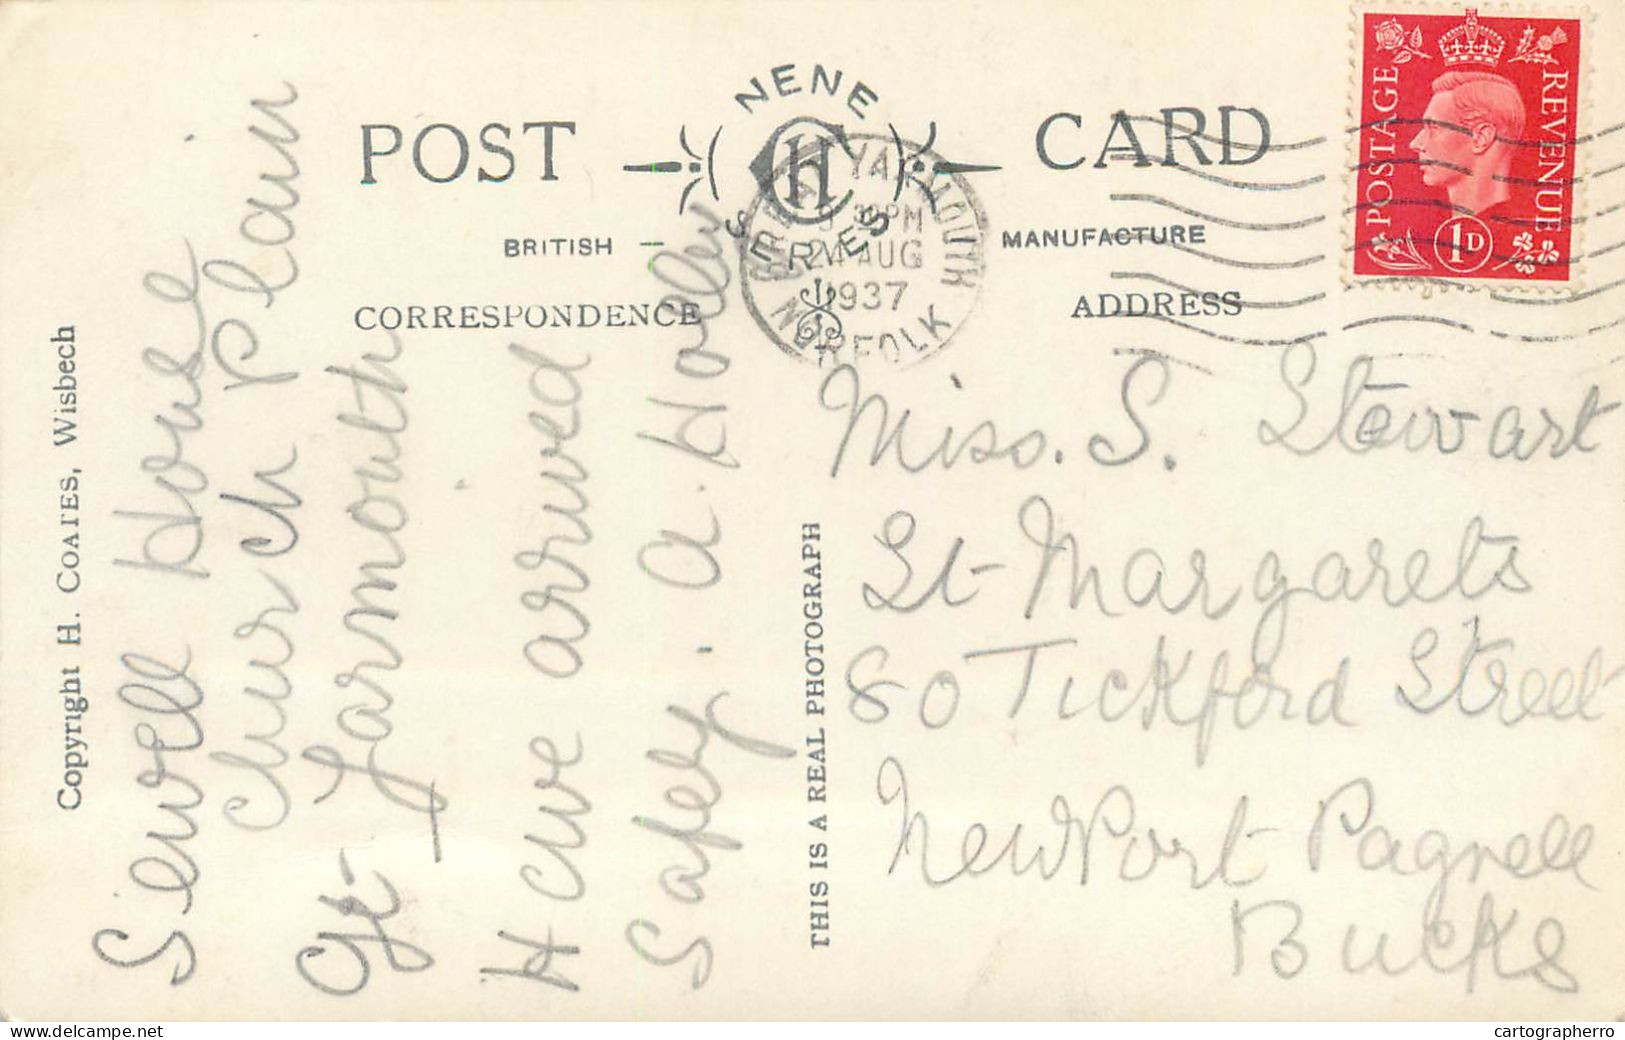 NENE
CH
SERIES
POST CARD
BRITISH MANUFACTURE
CORRESPONDENCE
ADDRESS
GREAT YARMOUTH
PM
24 AUG
1937
NORFOLK
POSTAGE
REVENUE
1D
Copyright H. COATES, Wisbech
Sewell House
Church Plain
Gt Yarmouth
Have arrived
Safely. A. Holley
THIS IS A REAL PHOTOGRAPH
Miss. S. Stewart
St Margarets
80 Tickford Street
Newport Pagnell
Bucks
delcampe.net
cartographerro